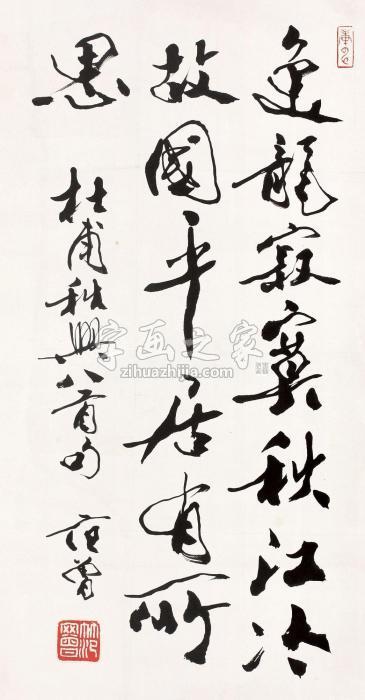 魚龍寂寞秋江冷
故國平居有所
思
杜甫秋興八首句 范曾
字画之家
zihuazhijia.com